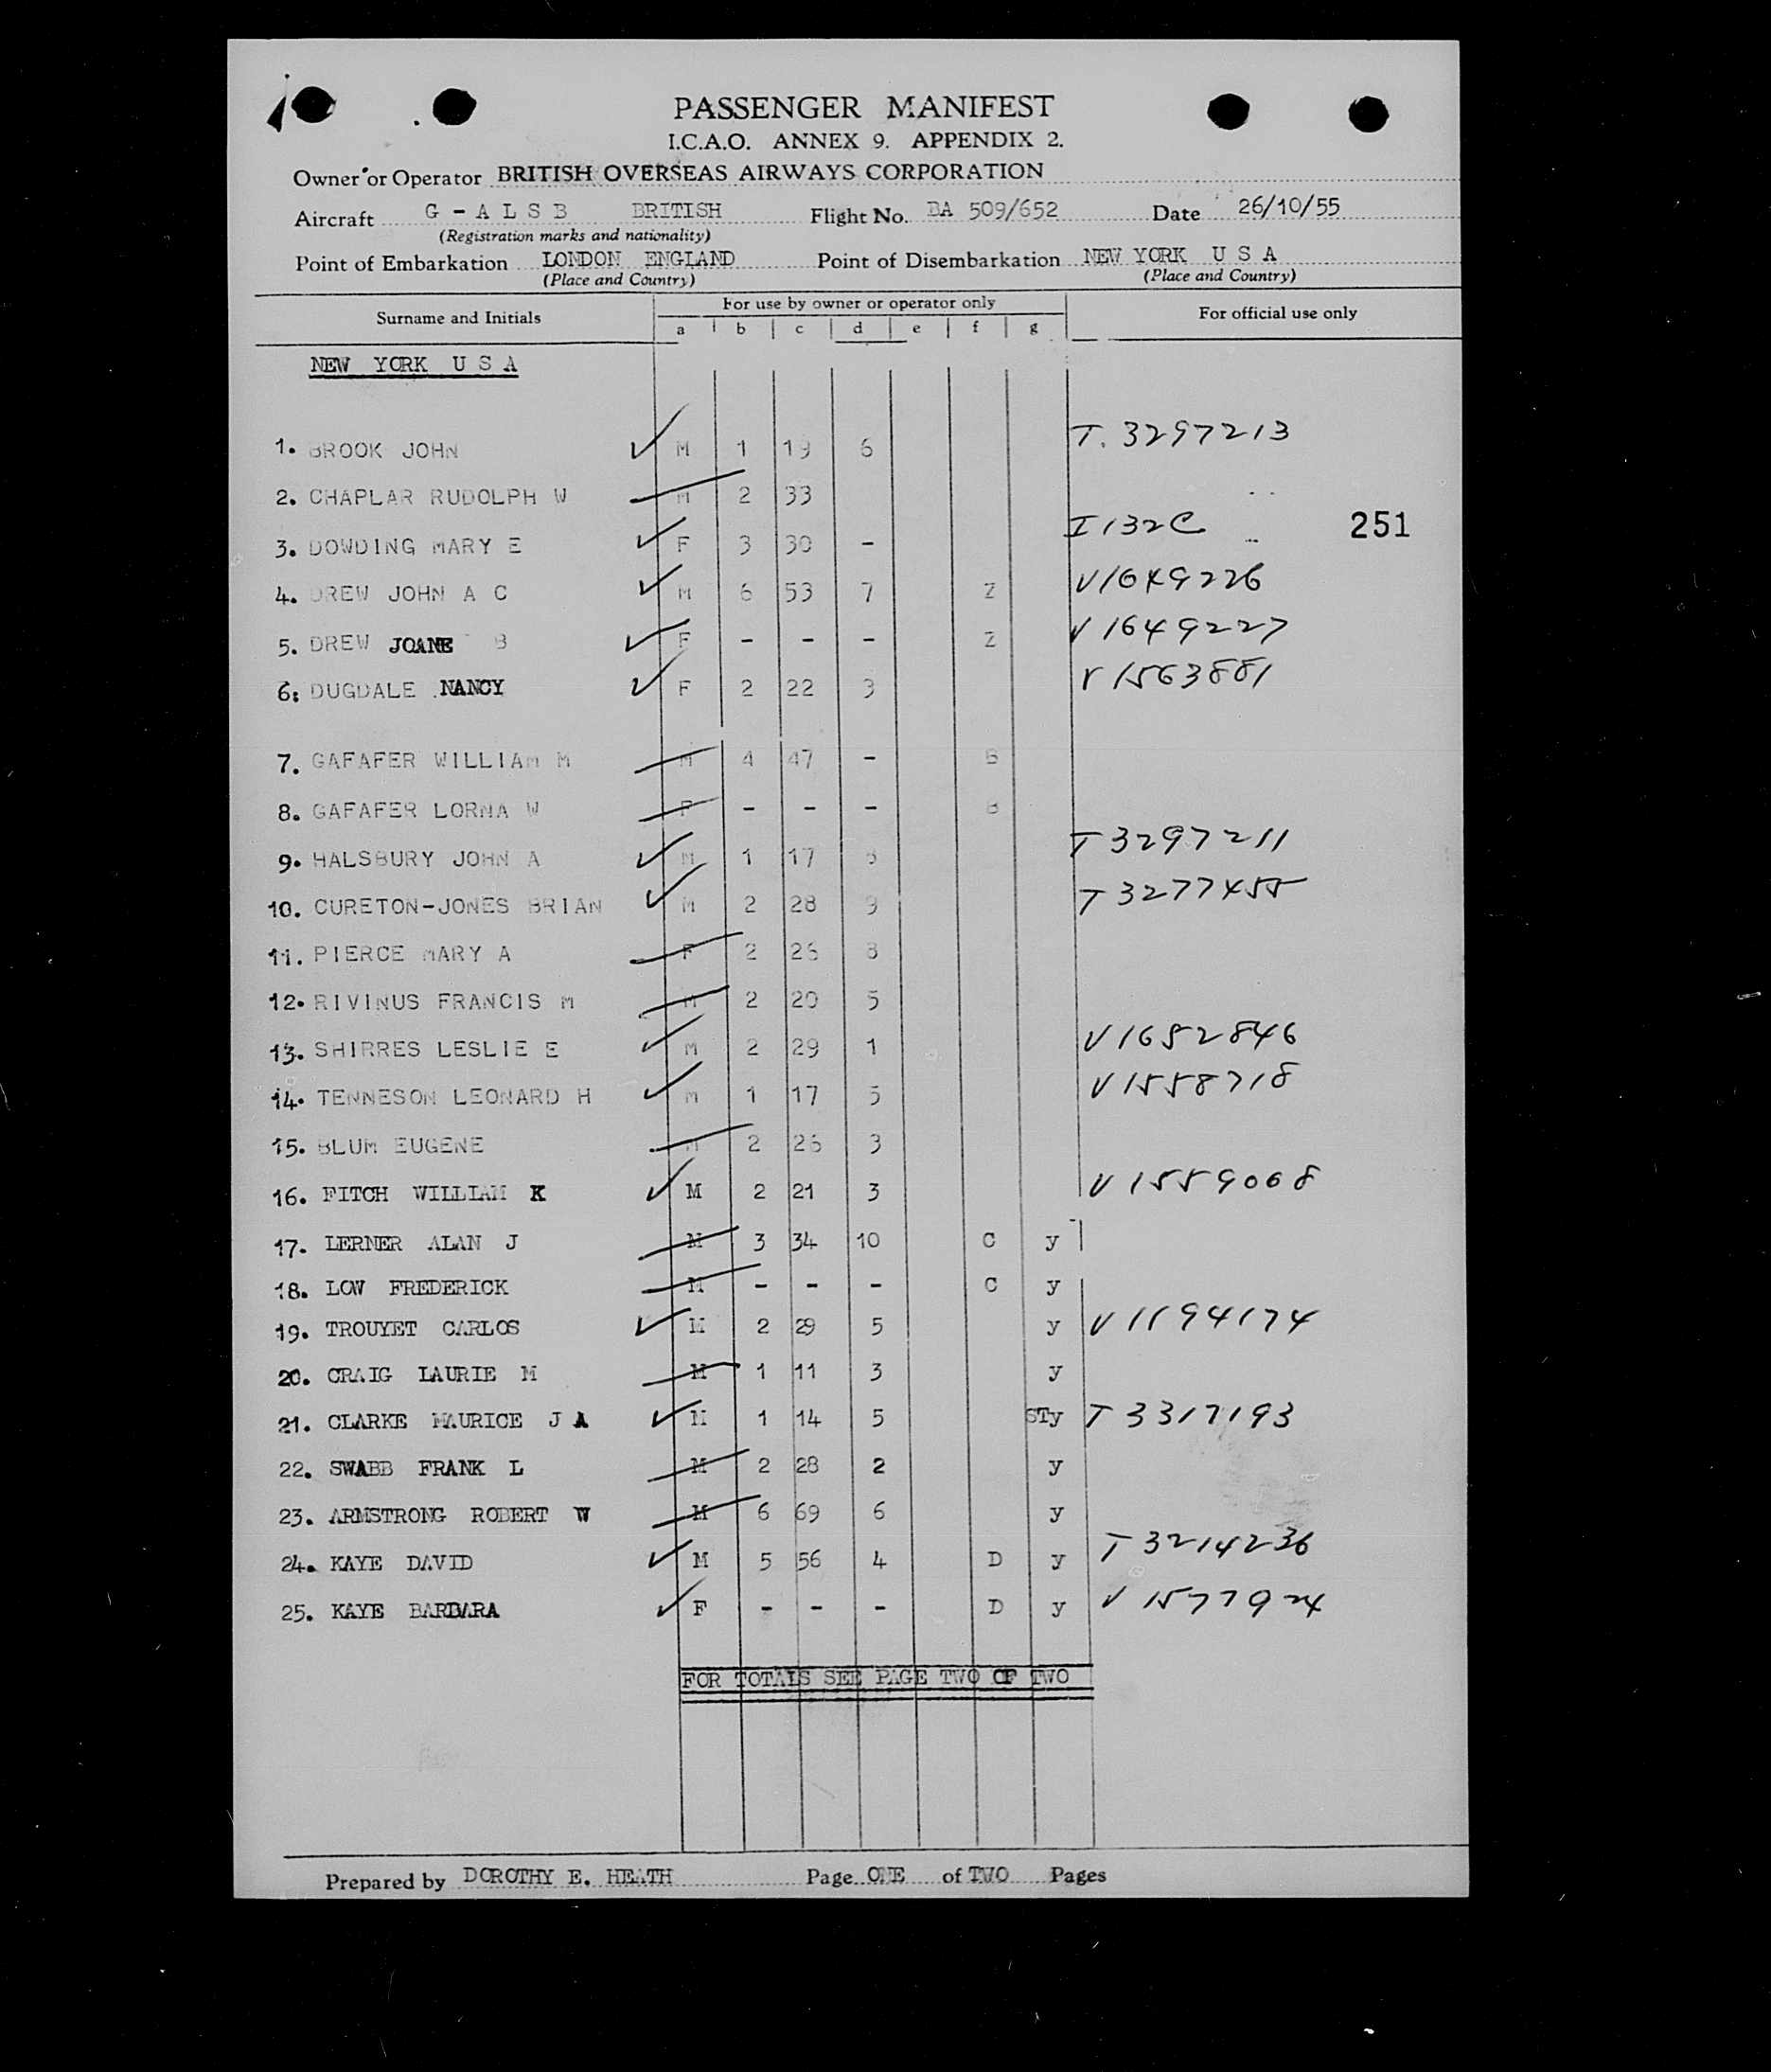 PASSENGER MANIFEST
I.C.A.O. ANNEX 9. APPENDIX 2.
Owner or Operator BRITISH OVERSEAS AIRWAYS CORPORATION
Aircraft G - A L S B BRITISH Flight No. BA 509/652 Date 26/10/55
(Registration marks and nationality)
Point of Embarkation LONDON ENGLAND Point of Disembarkation NEW YORK U S A
(Place and Country) (Place and Country)
Surname and Initials For use by owner or operator only For official use only
a b c d e f g
NEW YORK U S A
1. BROOK JOHN M 1 19 6 T. 3297213
2. CHAPLAR RUDOLPH W M 2 33
3. DOWDING MARY E F 3 30 - I 132C 251
4. DREW JOHN A C M 6 53 7 Z V1649226
5. DREW JOANE B F - - - Z V 1649227
6. DUGDALE NANCY F 2 22 3 V 1563881
7. GAFAFER WILLIAM M M 4 47 - B
8. GAFAFER LORNA W F - - - B
9. HALSBURY JOHN A M 1 17 8 T 3297211
10. CURETON-JONES BRIAN M 2 28 9 T 3277455
11. PIERCE MARY A F 2 26 8
12. RIVINUS FRANCIS M M 2 20 5
13. SHIRRES LESLIE E M 2 29 1 V 1652846
14. TENNESON LEONARD H M 1 17 5 V 1558718
15. BLUM EUGENE M 2 26 3
16. FITCH WILLIAM K M 2 21 3 V 1559068
17. LERNER ALAN J M 3 34 10 C y
18. LOW FREDERICK M - - - C y
19. TROUYET CARLOS M 2 29 5 y V 1194174
20. CRAIG LAURIE M M 1 11 3 y
21. CLARKE MAURICE J A M 1 14 5 STy T 3317193
22. SWABB FRANK L M 2 28 2 y
23. ARMSTRONG ROBERT W M 6 69 6 y
24. KAYE DAVID M 5 56 4 D y T 3214236
25. KAYE BARBARA F - - - D y V 1577924
FOR TOTALS SEE PAGE TWO OF TWO
Prepared by DOROTHY E. HEATH Page ONE of TWO Pages